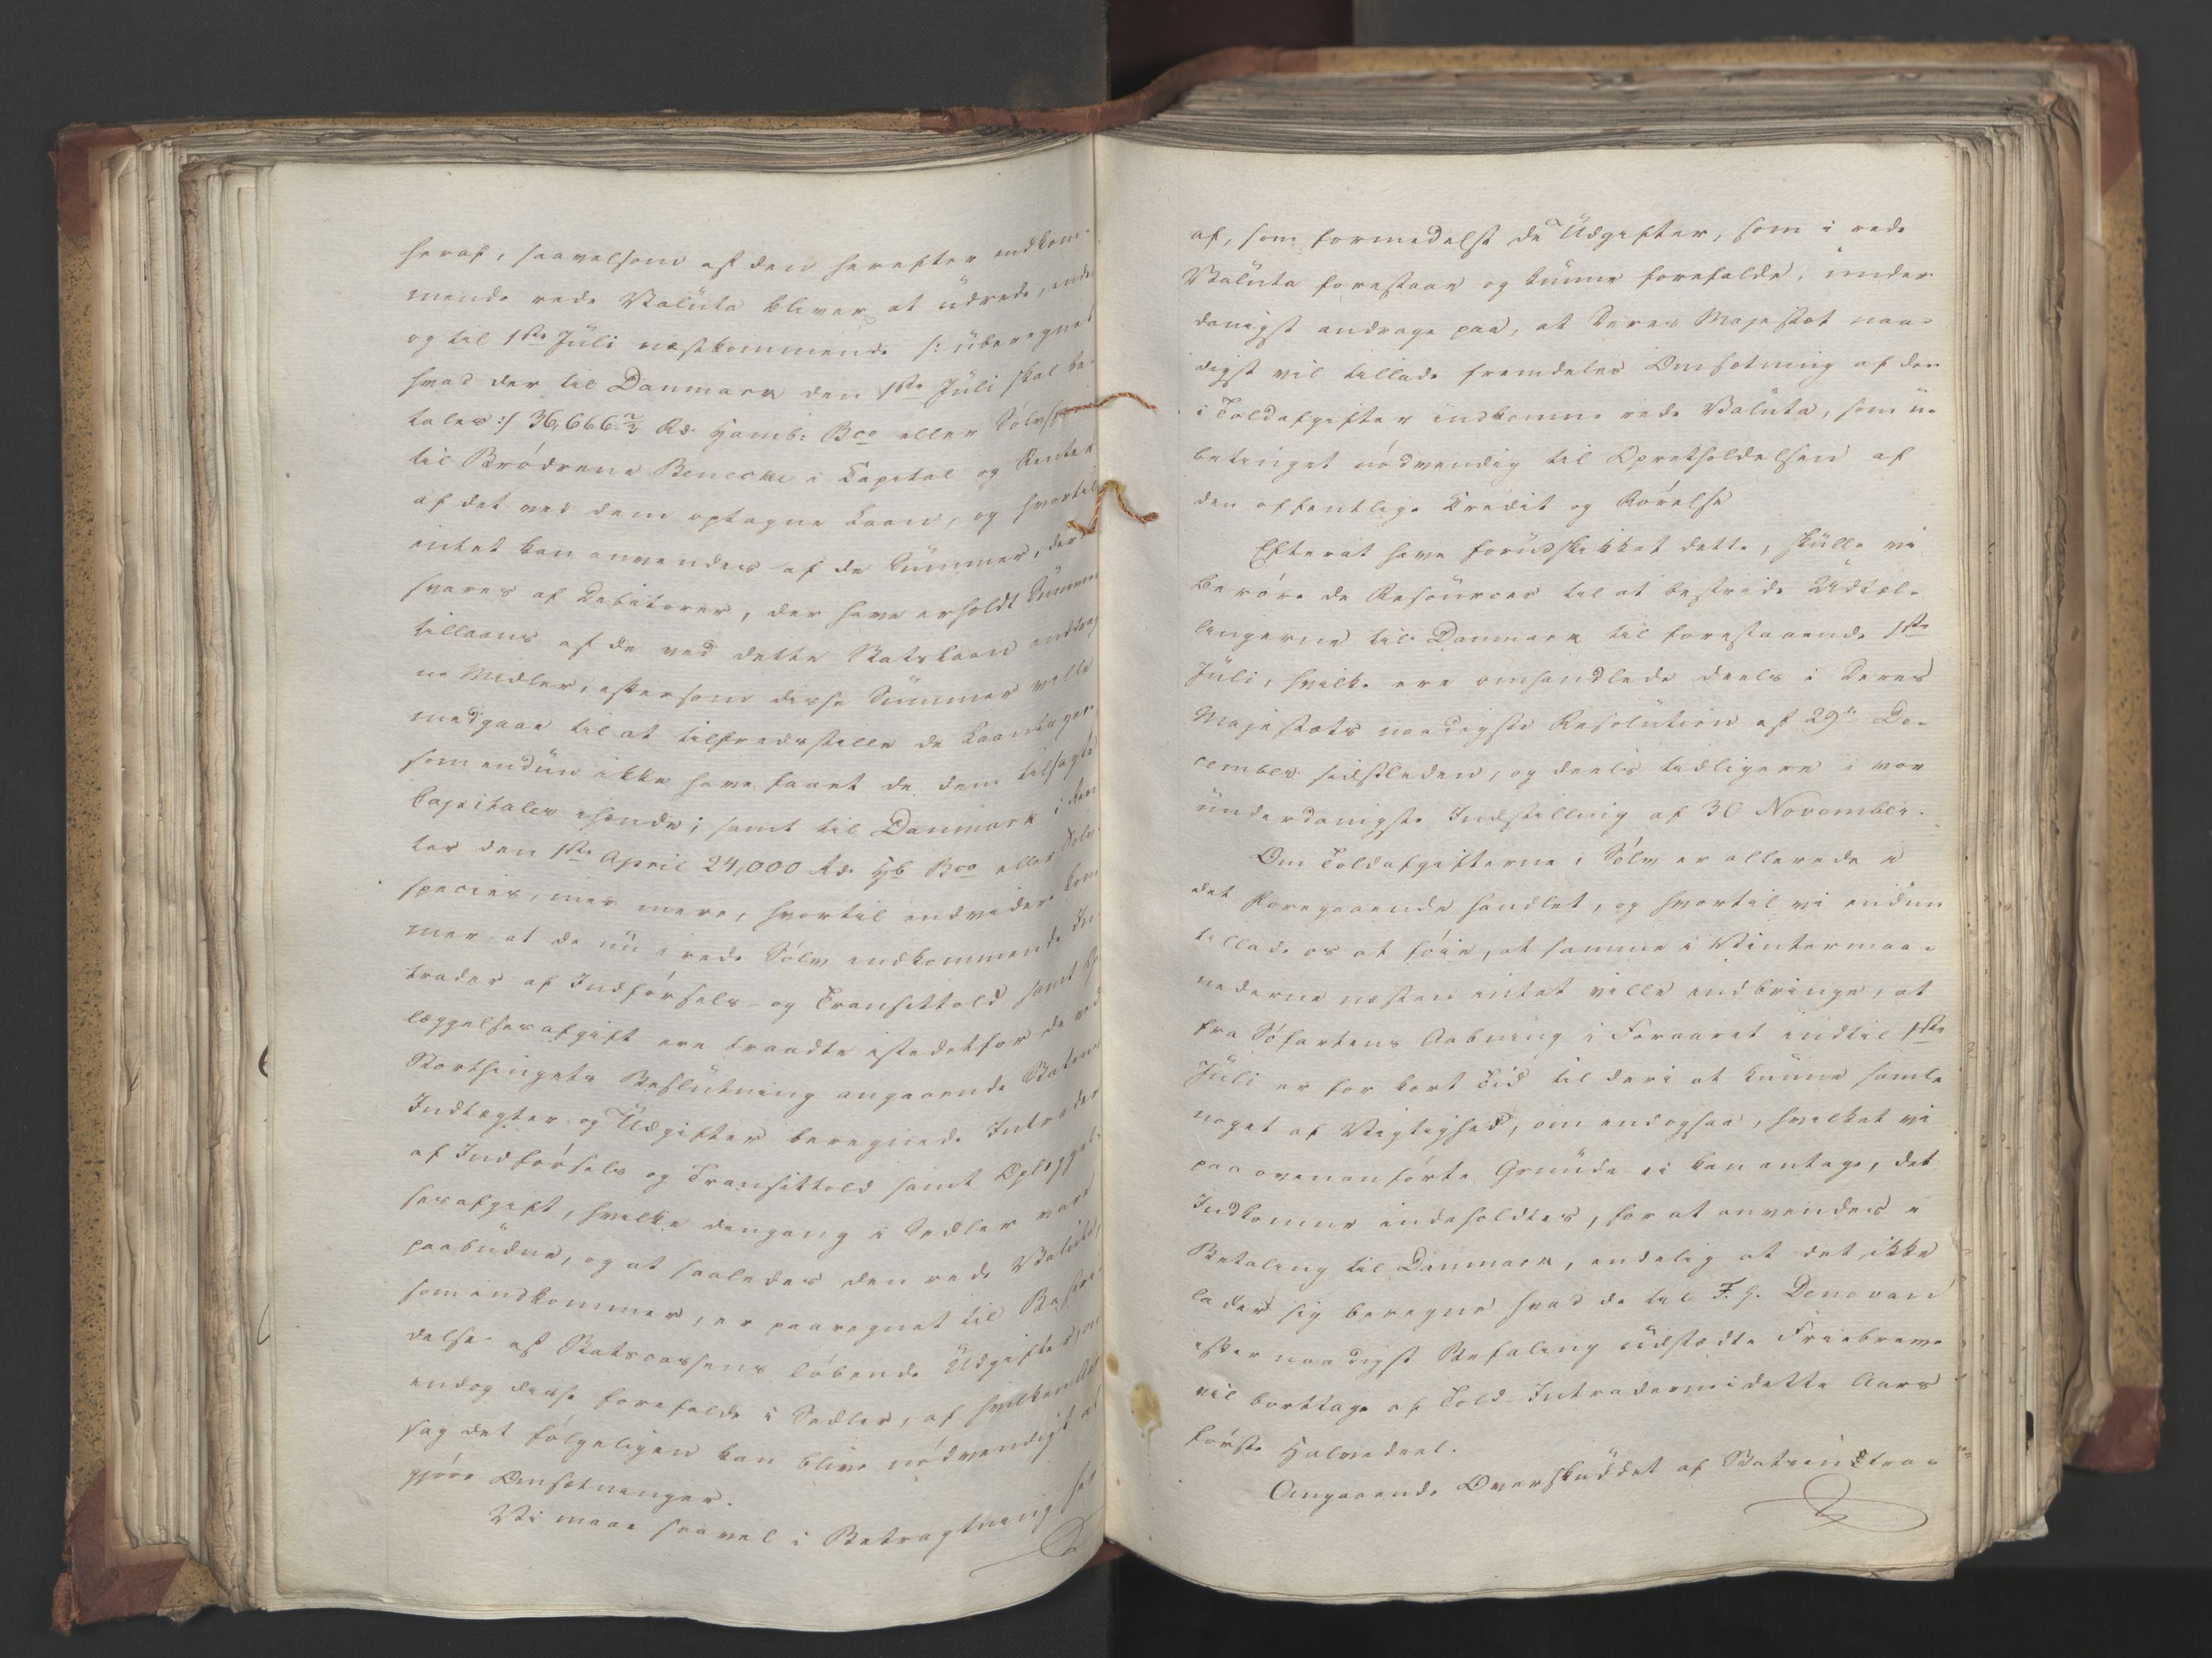 heraf, saavelsom af den herefter indkom-
mende rede Valüta bliver at üdrede, inden
og til 1ste Jüli næstkommende /: überegnet
hvad der til Danmark den 1ste Jüli skal be-
tales :/ 36,666 2/3 Rd. Hamb: Bco eller Sölvspecies
til Brödrene Benecke i Capital og Renter
af det ved dem optagne Laan, og hvortil
intet kan anvendes af de Summer, der
svares af Debitorer, der have erholdt Summer
tillaans af de ved dette Statslaan inddrag-
ne Midler, eftersom disse Summer ville
medgaae til at tilfredsstille de Laantagere
som endnü ikke have faaet de dem tilsagte
Capitaler ihænde; samt til Danmark i Ren-
ter den 1ste April 24,000 Rd. Hb Bco eller Sölv-
species, mer mere, hvortil endvidere kom-
mer, at de nü i rede Sölv indkommende In-
trader af Indförsels- og Transittold samt Op-
læggelsesafgift ere traadte istedetfor de ved
Storthingets Beslütning angaaende Statens
Indtægter og Üdgifter beregnede Intrader
af Indförsels og Transittold samt Oplæggel-
sesafgift, hvilke dengang i Sedler vare
paabüdne, og at saaledes den rede Valüta,
som indkommer, er paaregnet til Bestri-
delse af Statscassens löbende Üdgifter, om
endog disse forefalde i Sedler, af hvilken Aar-
sag det fölgeligen kan blive nödvendigt at
gjöre Omsætninger.
Vi maae saavel i Betragtning her
af, som formedelst de Üdgifter, som i rede
Valüta forestaae og künne forefalde, ünder
danigst andrage paa, at Deres Majestæt naa-
digst vil tillade fremdeles Omsætning af den
i Toldafgifter indkomne rede Valüta, som ü-
betinget nödvendig til Opretholdelsen af
den offentlige Credit og Rörelse
Efterat have forüdskikket dette, skülle vi
beröre de Resourcer til at bestride Üdtæl-
lingerne til Danmark til forestaaende 1ste
Jüli, hvilke ere omhandlede deels i Deres
Majestæts naadigste Resolütion af 29de De-
cember sidstleden, og deels tidligere i vor
ünderdanigste Indstilling af 30 November.
Om Toldafgifterne i Sölv er allerede i
det Foregaaende handlet, og hvortil vi endnü
tillade os at föie, at samme i Vintermaa-
nederne næsten intet ville indbringe, at
fra Söfartens Aabning i Foraaret indtil 1ste
Jüli er for kort Tid til deri at künne samle
noget af Vigtighed, om endogsaa, hvilket vi
paa ovenanförte Gründe ei kan antage, det
Indkomne indeholdtes, for at anvendes i
Betaling til Danmark, endelig at det ikke
lader sig beregne hvad de til F. H. Denovan
efter naadigst Befaling üdstædte Friebreve
vil borttage af Told-Intraderne i dette Aars
förste Halvedeel.
Angaaende Overskuddet af Statsintra-